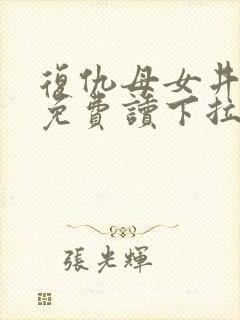 復仇母女丼
免費讀下拉
張光輝